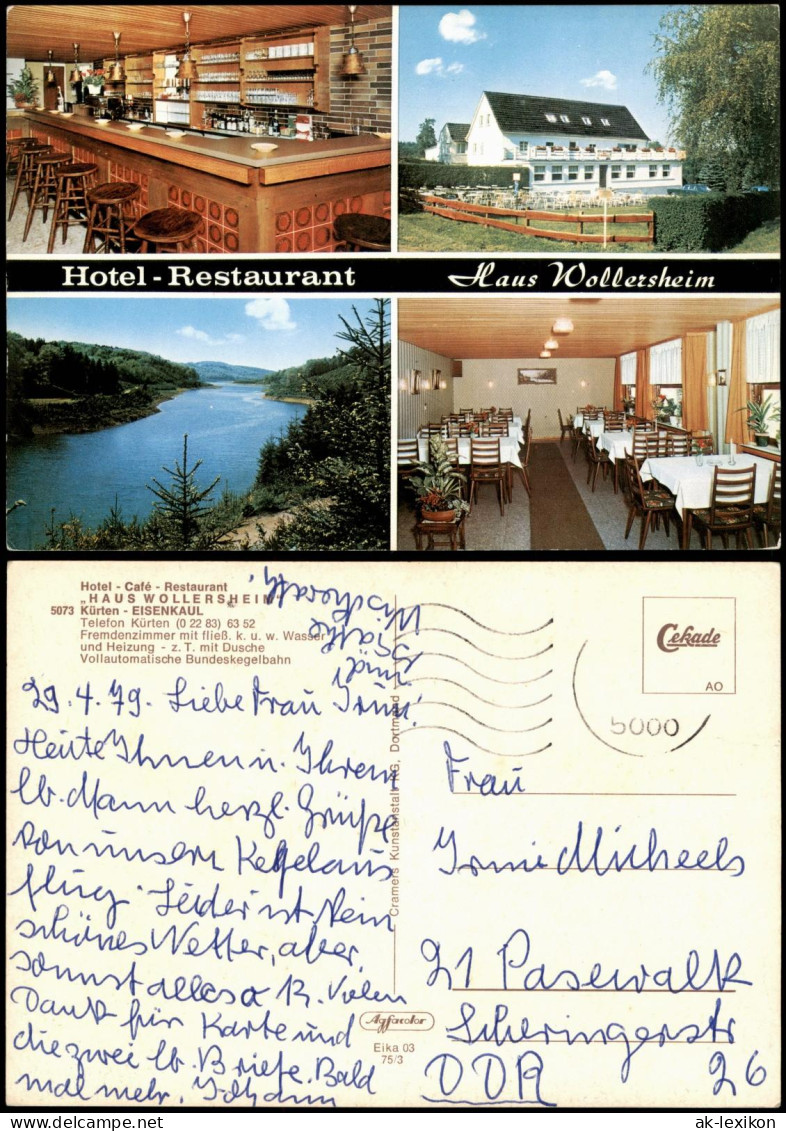 Hotel - Restaurant
Haus Wollersheim
Hotel - Café - Restaurant
„HAUS WOLLERSHEIM"
5073 Kürten - EISENKAUL
Telefon Kürten (0 22 83) 63 52
Fremdenzimmer mit fließ. k. u. w. Wasser
und Heizung - z. T. mit Dusche
Vollautomatische Bundeskegelbahn
29.4.79. Liebe Frau Irmi!
Heute Ihnen u. Ihrem
lb. Mann herzl. Grüße
von unserm Kegelaus
flug. Leider ist kein
schönes Wetter, aber
sonst alles o.k. Vielen
Dank für Karte und
die zwei lb. Briefe. Bald
mal mehr. Johann
und
Cramers Kunstanstalt KG, Dortmund
Agfacolor
Eika 03
75/3
Cekade
AO
5000
Frau
Irmi Micheels
21 Pasewalk
Scheringerstr
DDR 26
ak-lexikon